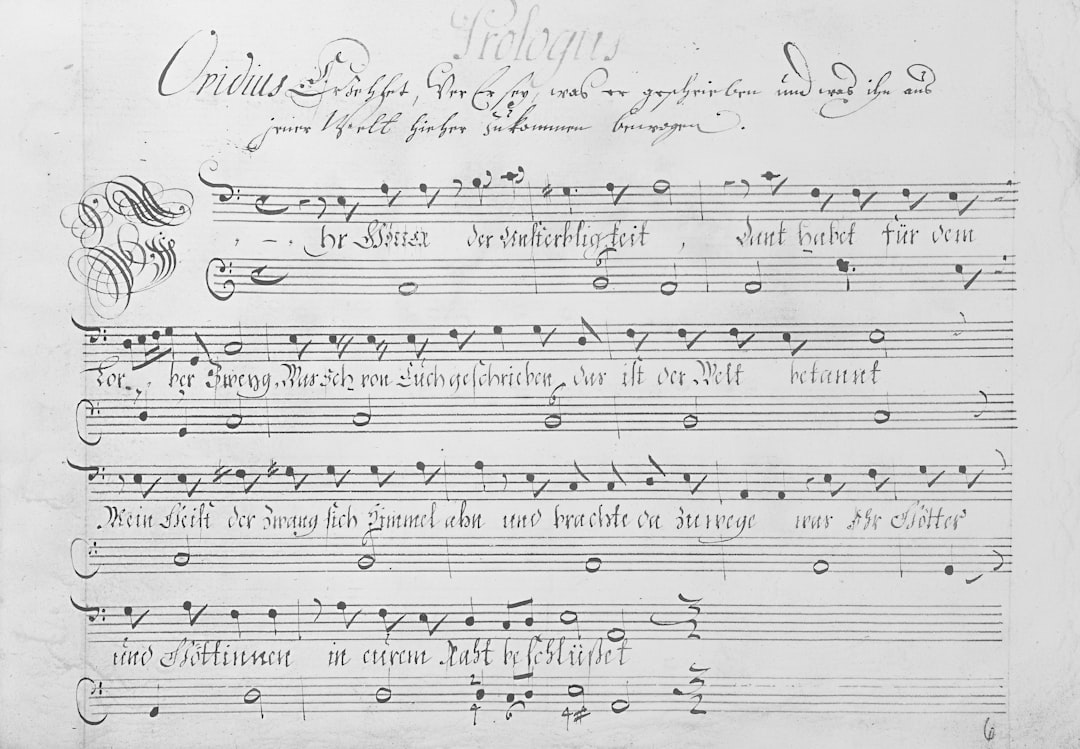 Prologus
Ovidius Erzehlet, Wer Er sey, was er geschrieben und was ihn aus
jener Welt hieher zukommen bewogen.
Ihr Götter der Unsterbligkeit, dant habet für dem
Lor- ber Zweyg, Was Ich von Euch geschrieben, das ist der Welt bekannt
Mein Geist der zwang sich Himmel ahn und brachte da zuwege was Ihr Götter
und Göttinnen in eurem Raht beschlüßet
6
6
6
6
2
4 6 4#
3
2
3
2
6